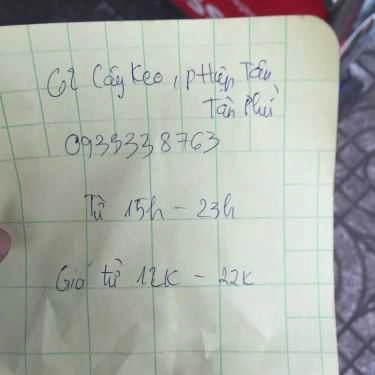 62 Cây Keo, p Hiệp Tân
Tân Phú
0935338763
Từ 15h - 23h
Giá từ 12K - 22K